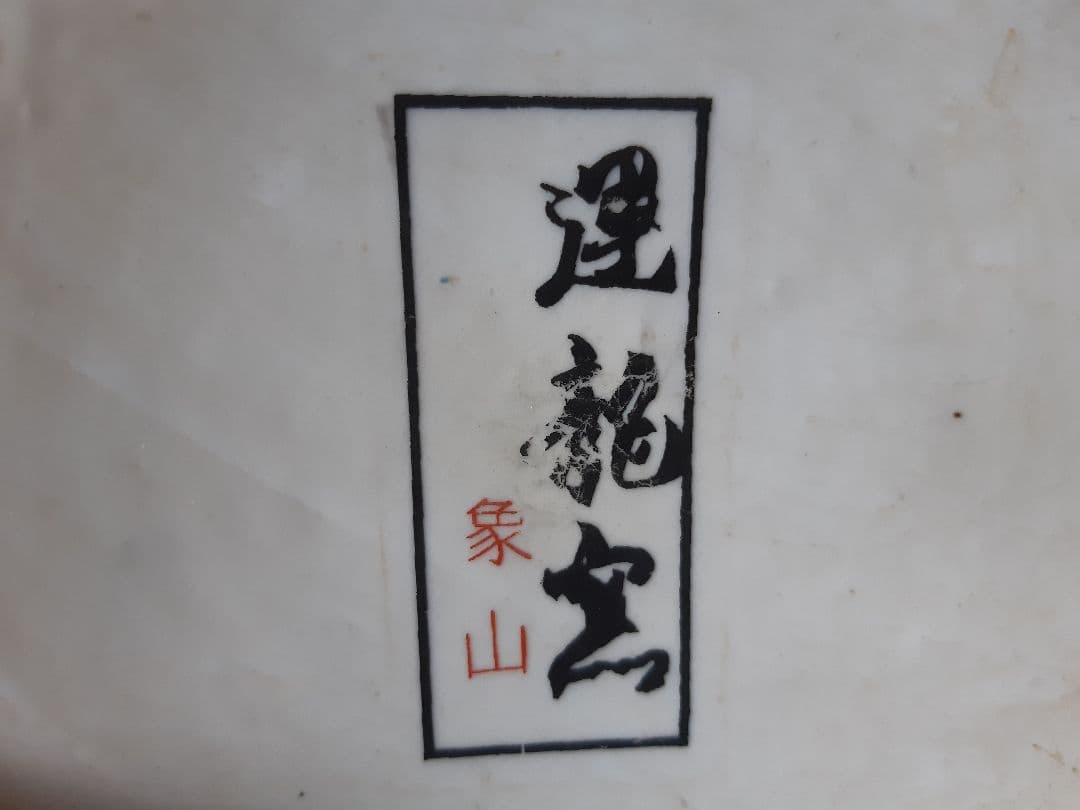 運龍窯
象山